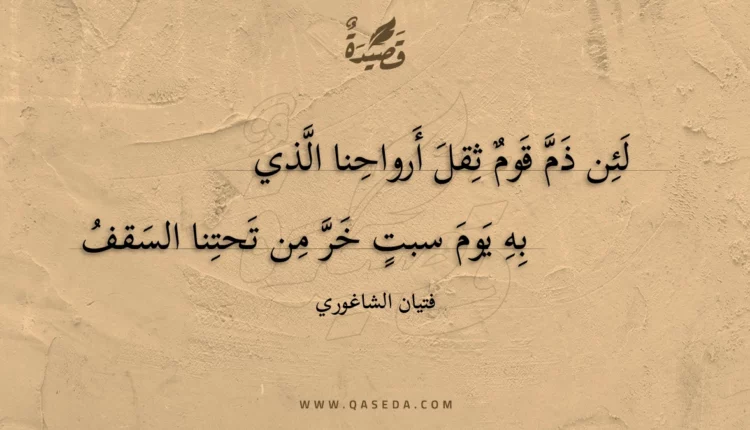 قَصِيْدَةٌ
لَئِن ذَمَّ قَومٌ ثِقلَ أَرواحِنا الَّذي
بِهِ يَومَ سبتٍ خَرَّ مِن تَحتِنا السَقفُ
فتيان الشاغوري
WWW.QASEDA.COM